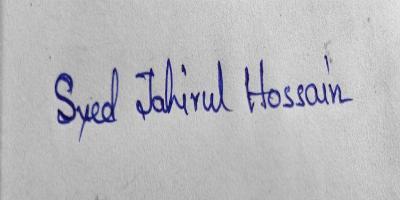 Syed Jahirul Hossain